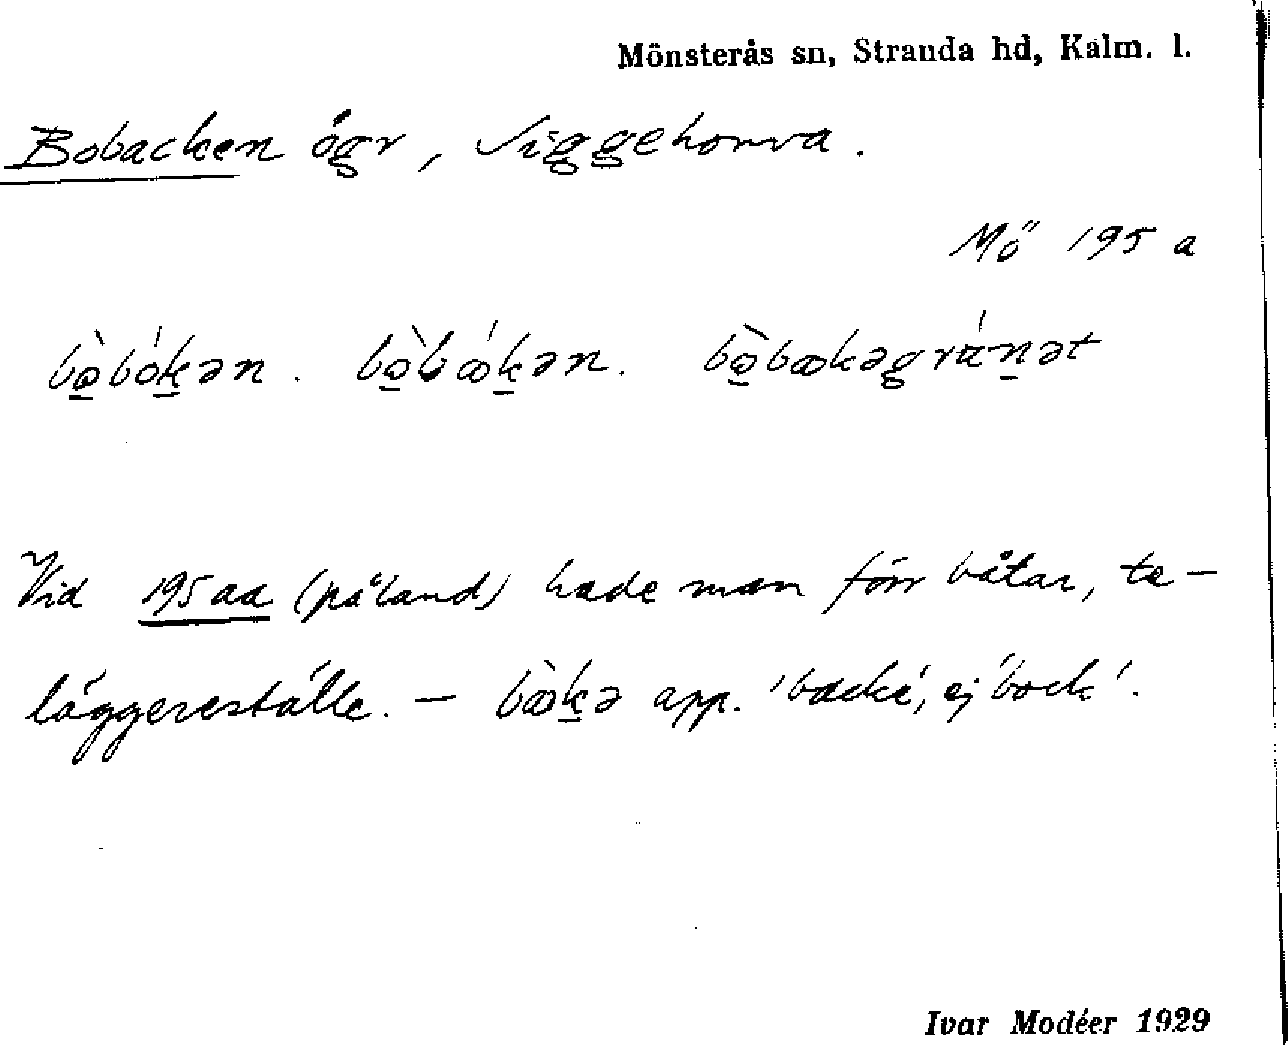 Mönsterås sn, Stranda hd, Kalm. l.
Bobacken ögr, Viggehorva.
Mö 195 a
bò̱bóḵən. bò̱bǽḵən. bò̱bækəgrán̠ət
Vid 195aa (påland) hade man förr båtar, te-
läggereställe. – bæ̀k̠ə app. 'backe', ej 'bock'.
Ivar Modéer 1929